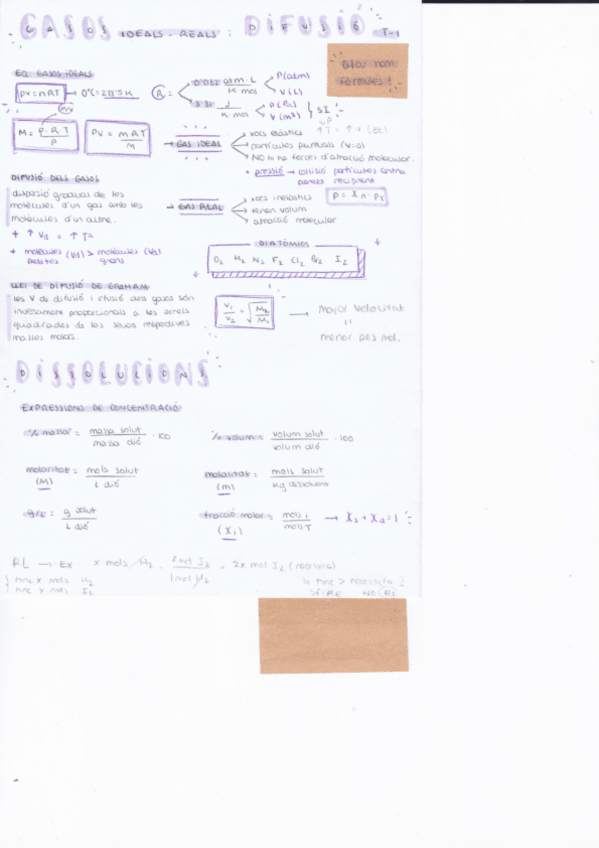 GASOS IDEALS - REALS : DIFUSIÓ T-1
EQ. GASOS IDEALS
PV = nRT → 0ºC = 273'15 K
R = 0'082 atm·L / K mol
P (atm)
V (L)
8'31 J / K mol
P (Pa)
V (m³)
SI
M = P·R·T / P
PV = mRT / M
GAS IDEAL
xocs elàstics
partícules puntuals (V=0)
NO hi ha forces d'atracció molecular.
+ pressió → col·lisió partícules contra
parets recipient
DIFUSIÓ DELS GASOS
dispersió gradual de les
molècules d'un gas amb les
molècules d'un altre.
GAS REAL
xocs inelàstics
tenen volum
atracció molecular
+ ↑ Vd = ↑ Tª
+ molècules (Vd) > molècules (Vd)
petites grans
DIATÒMICS
O₂ H₂ N₂ F₂ Cl₂ Br₂ I₂
LLEI DE DIFUSIÓ DE GRAHAM
les V de difusió i efusió dels gasos són
inversament proporcionals a les arrels
quadrades de les seves respectives
masses molars.
V₁ / V₂ = √ M₂ / M₁
major velocitat
=
menor pes mol.
DISSOLUCIONS
EXPRESSIONS DE CONCENTRACIÓ
% massa = massa solut / massa dió · 100
% volum = volum solut / volum dió · 100
molaritat = mols solut / L dió
(M)
molalitat = mols solut / kg dissolvent
(m)
g/L = g solut / L dió
fracció molar = mols i / mols T → Xs + Xd = 1
(Xi)
R.L → Ex x mols H₂ · 2 mol I₂ / 1 mol H₂ = 2x mol I₂
tinc x mols H₂
tinc y mols I₂